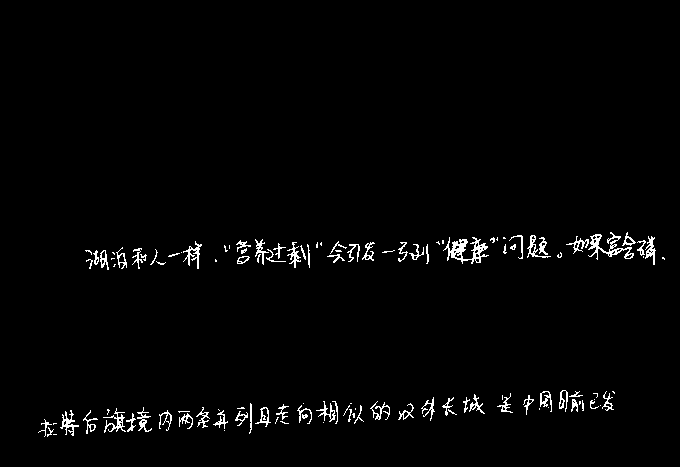 湖泊和人一样，“营养过剩”会引发一系列“健康”问题。如果富含磷、
在特后旗境内两条并列且走向相似的汉外长城是中国目前已发